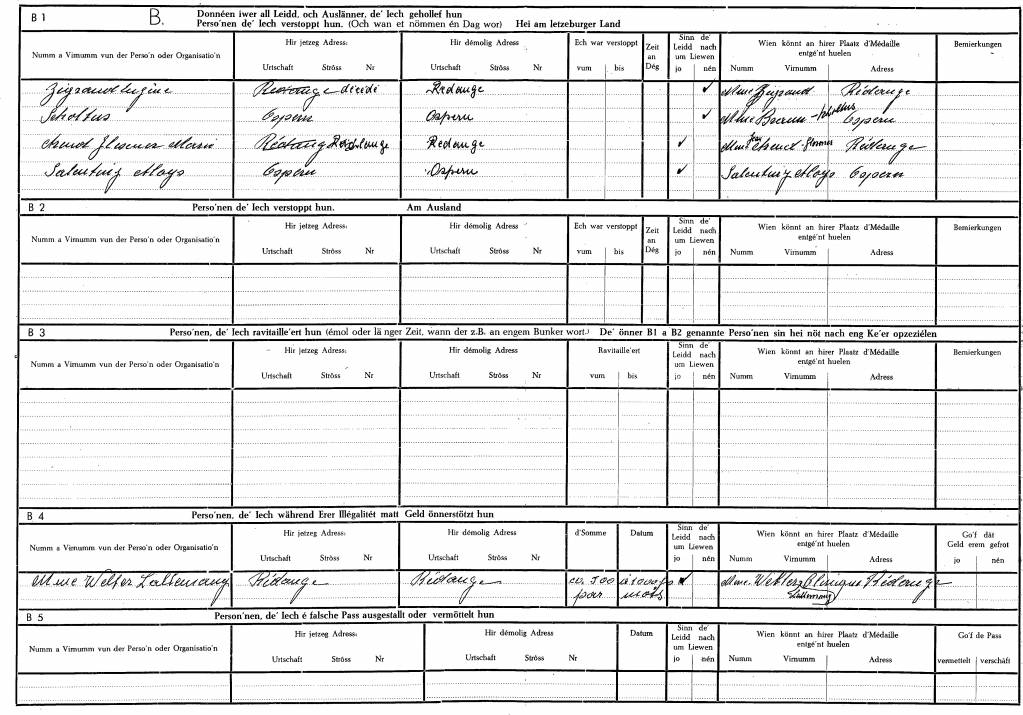 B 1 B. Donnéen iwer all Leidd, och Auslänner, de' Iech gehollef hun
Perso'nen de' Iech verstoppt hun. (Och wan et nömmen én Dag wor) Hei am letzeburger Land
Numm a Virnumm vun der Perso'n oder Organisatio'n Hir jetzeg Adress: Hir démolig Adress Ech war verstoppt Zeit an Dég Sinn de' Leidd nach um Liewen Wien könnt an hirer Plaatz d'Médaille entgé'nt huelen Bemierkungen
Urtschaft Ströss Nr Urtschaft Ströss Nr vum bis jo nén Numm Virnumm Adress
Zigrand Eugène Redange décédé Redange ✓ Mme Zigrand Rédange
Scholtus Ospern Ospern ✓ Mme Scholtus Ospern
Marie Rédang Redange ✓ Mme Rédange
Salentiny Aloys Ospern Ospern ✓ Salentiny Aloys Ospern
B 2 Perso'nen de' Iech verstoppt hun. Am Ausland
Numm a Virnumm vun der Perso'n oder Organisatio'n Hir jetzeg Adress: Hir démolig Adress Ech war verstoppt Zeit an Dég Sinn de' Leidd nach um Liewen Wien könnt an hirer Plaatz d'Médaille entgé'nt huelen
Urtschaft Ströss Nr Urtschaft Ströss Nr vum bis jo nén Numm Virnumm Adress
B 3 Perso'nen, de' Iech ravitaille'ert hun (émol oder länger Zeit, wann der z.B. an engem Bunker wort.) De' önner B1 a B2 genannte Perso'nen sin hei nöt nach eng Ke'er opzeziélen
Numm a Virnumm vun der Perso'n oder Organisatio'n Hir jetzeg Adress: Hir démolig Adress Ravitaille'ert Sinn de' Leidd nach um Liewen Wien könnt an hirer Plaatz d'Médaille entgé'nt huelen Bemierkungen
Urtschaft Ströss Nr Urtschaft Ströss Nr vum bis jo nén Numm Virnumm Adress
B 4 Perso'nen, de' Iech während Erer Illégalitét matt Geld önnerstötzt hun
Numm a Virnumm vun der Perso'n oder Organisatio'n Hir jetzeg Adress: Hir démolig Adress d'Somme Datum Sinn de' Leidd nach um Liewen Wien könnt an hirer Plaatz d'Médaille entgé'nt huelen Go'f dät Geld erem gefrot
Urtschaft Ströss Nr Urtschaft Ströss Nr jo nén Numm Virnumm Adress jo nén
Mme Welter Rédange Rédange 500 à 1000 Mme. Clinique Rédange
par mois
B 5 Person'nen, de' Iech é falsche Pass ausgestallt oder vermöttelt hun
Numm a Virnumm vun der Perso'n oder Organisatio'n Hir jetzeg Adress: Hir démolig Adress Datum Sinn de' Leidd nach um Liewen Wien könnt an hirer Plaatz d'Médaille entgé'nt huelen Go'f de Pass
Urtschaft Ströss Nr Urtschaft Ströss Nr jo nén Numm Virnumm Adress vermettelt verschäft